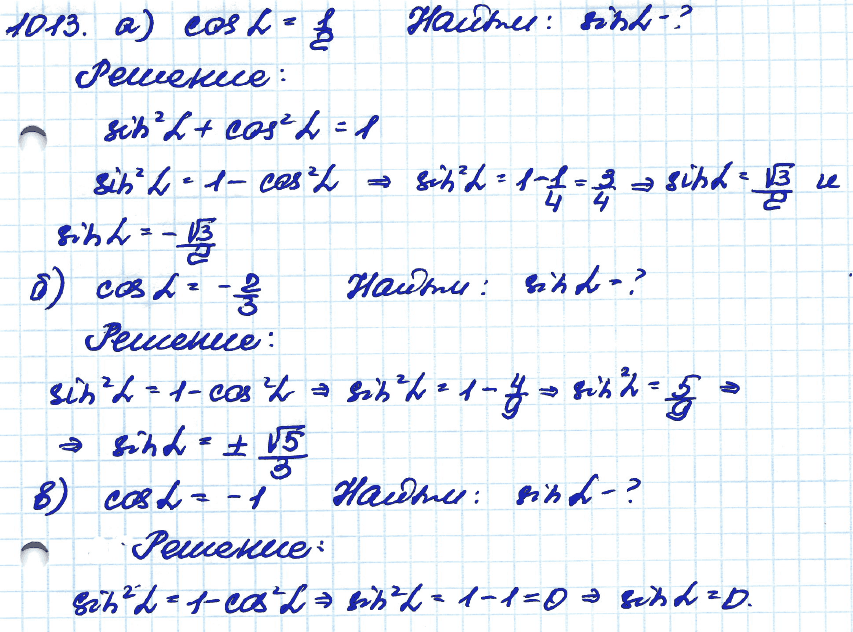 1013. а) cos α = 1/2 Найти: sin α - ?
Решение:
sin² α + cos² α = 1
sin² α = 1 - cos² α ⇒ sin² α = 1 - 1/4 = 3/4 ⇒ sin α = √3/2 и
sin α = - √3/2
б) cos α = - 2/3 Найти: sin α - ?
Решение:
sin² α = 1 - cos² α ⇒ sin² α = 1 - 4/9 ⇒ sin² α = 5/9 ⇒
⇒ sin α = ± √5/3
в) cos α = - 1 Найти: sin α - ?
Решение:
sin² α = 1 - cos² α ⇒ sin² α = 1 - 1 = 0 ⇒ sin α = 0.